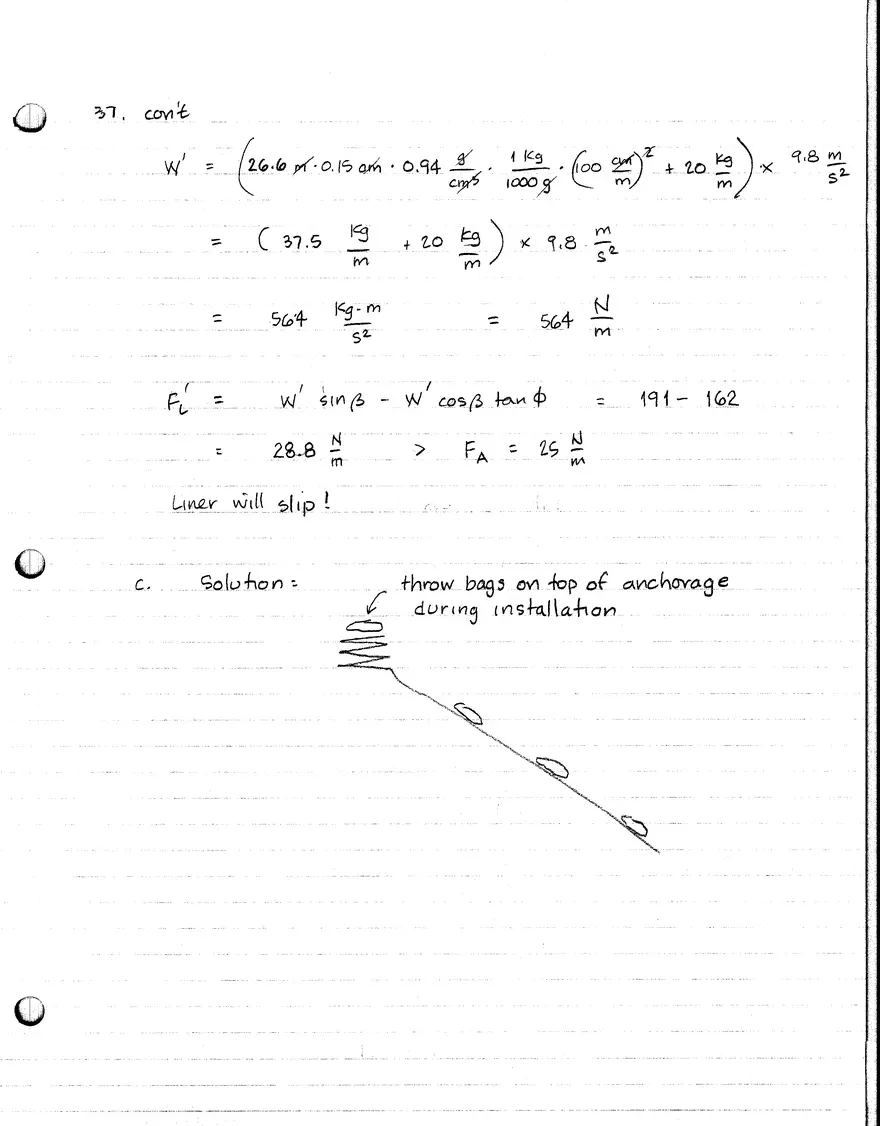 37. con't
W' = (26.6 m · 0.15 cm · 0.94 g/cm³ · 1 Kg/1000 g · (100 cm/m)² + 20 Kg/m) × 9.8 m/s²
= ( 37.5 Kg/m + 20 Kg/m ) × 9.8 m/s²
= 564 Kg-m/s² = 564 N/m
F_L' = W' sin β - W' cos β tan ϕ = 191 - 162
= 28.8 N/m > F_A = 25 N/m
Liner will slip!
c. Solution: throw bags on top of anchorage
during installation